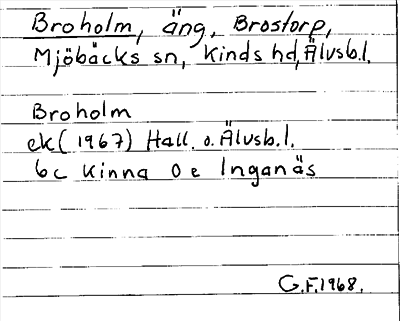 Broholm, äng, Brostorp,
Mjöbäcks sn, Kinds hd, Älvsb.l.
Broholm
ek (1967) Hall. o. Älvsb.l.
6c Kinna 0e Inganäs
G.F. 1968.